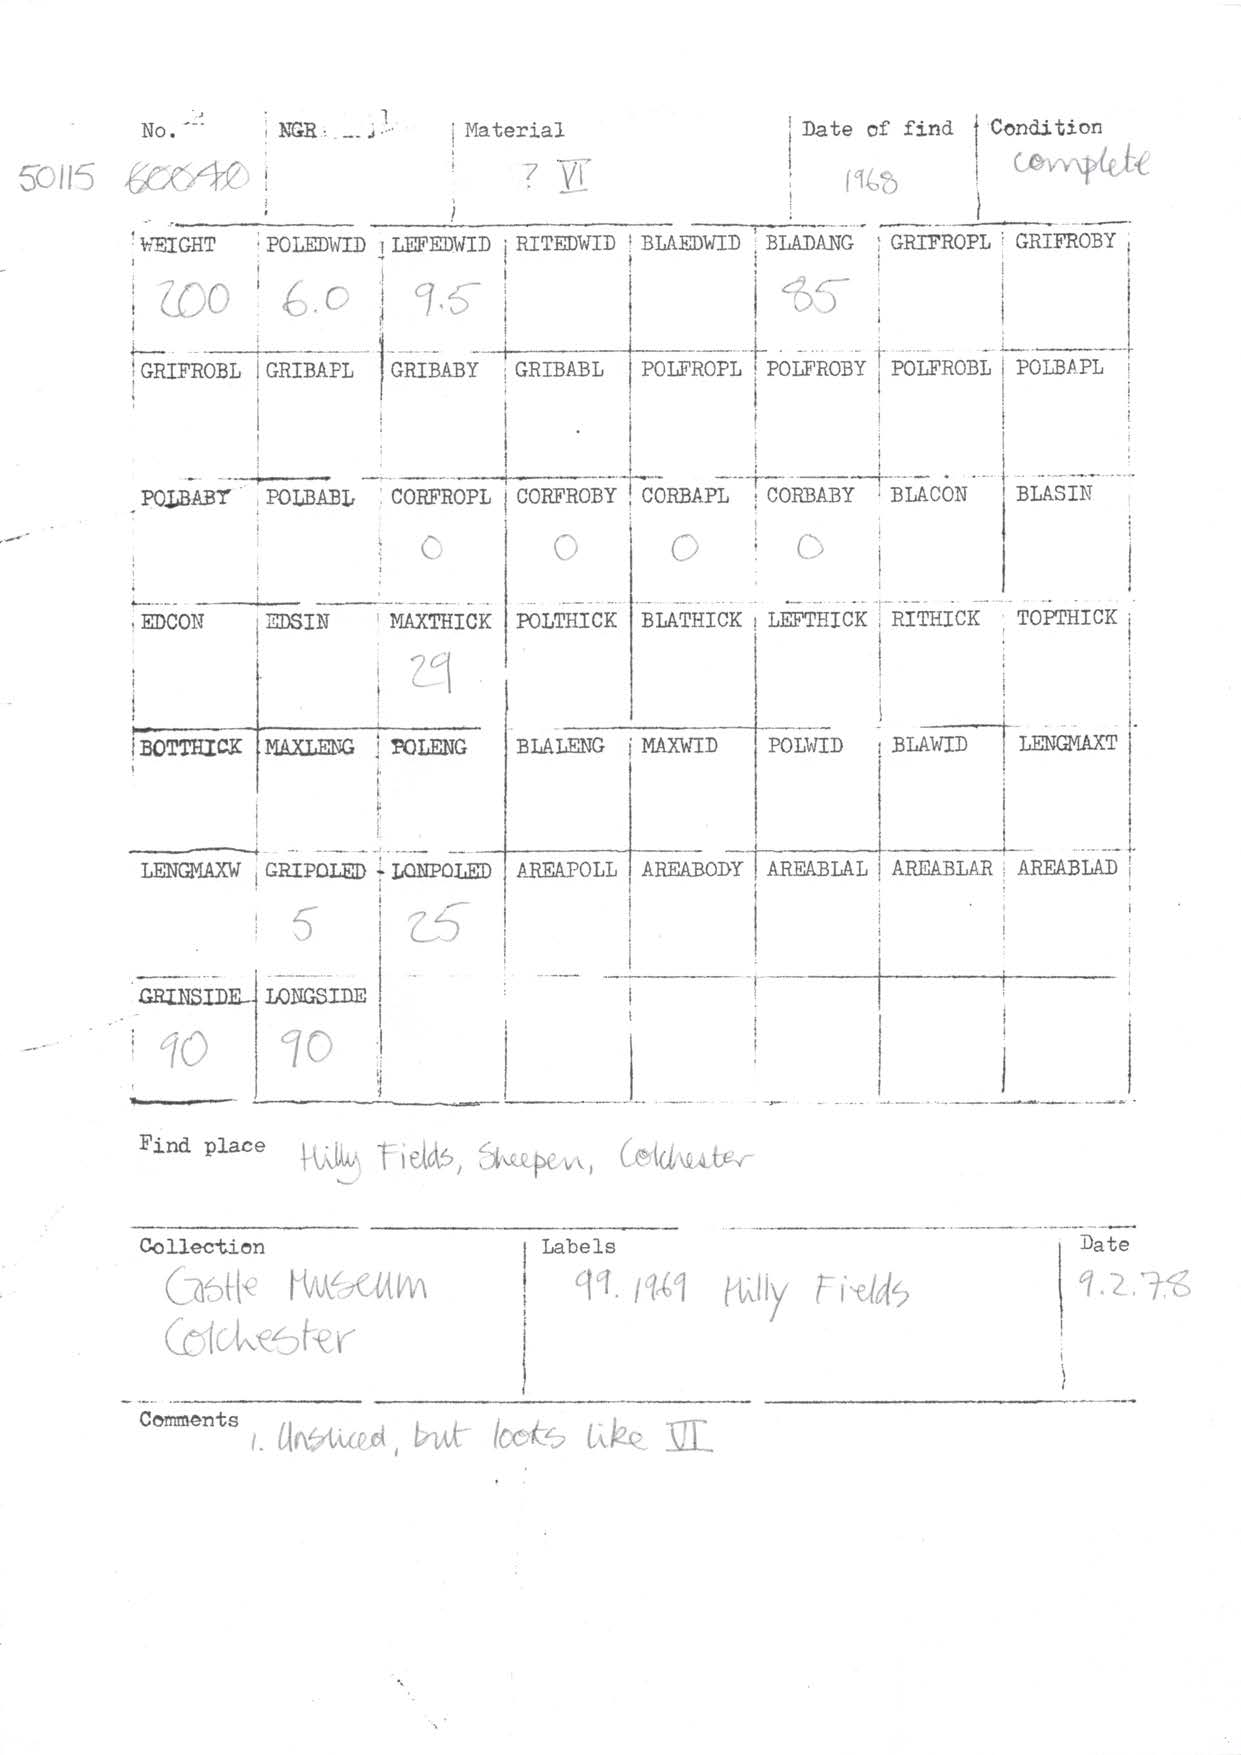 No. NGR Material Date of find Condition
50115 ? VI 1968 complete
WEIGHT POLEDWID LEFEDWID RITEDWID BLAEDWID BLADANG GRIFROPL GRIFROBY
200 6.0 9.5 85
GRIFROBL GRIBAPL GRIBABY GRIBABL POLFROPL POLFROBY POLFROBL POLBAPL
POLBABY POLBABL CORFROPL CORFROBY CORBAPL CORBABY BLACON BLASIN
0 0 0 0
EDCON EDSIN MAXTHICK POLTHICK BLATHICK LEFTHICK RITHICK TOPTHICK
29
BOTTHICK MAXLENG POLENG BLALENG MAXWID POLWID BLAWID LENGMAXT
LENGMAXW GRIPOLED LONPOLED AREAPOLL AREABODY AREABLAL AREABLAR AREABLAD
5 25
GRINSIDE LONGSIDE
90 90
Find place Hilly Fields, Sheepen, Colchester
Collection Labels Date
Castle Museum 99.1969 Hilly Fields 9.2.78
Colchester
Comments 1. Unsliced, but looks like VI